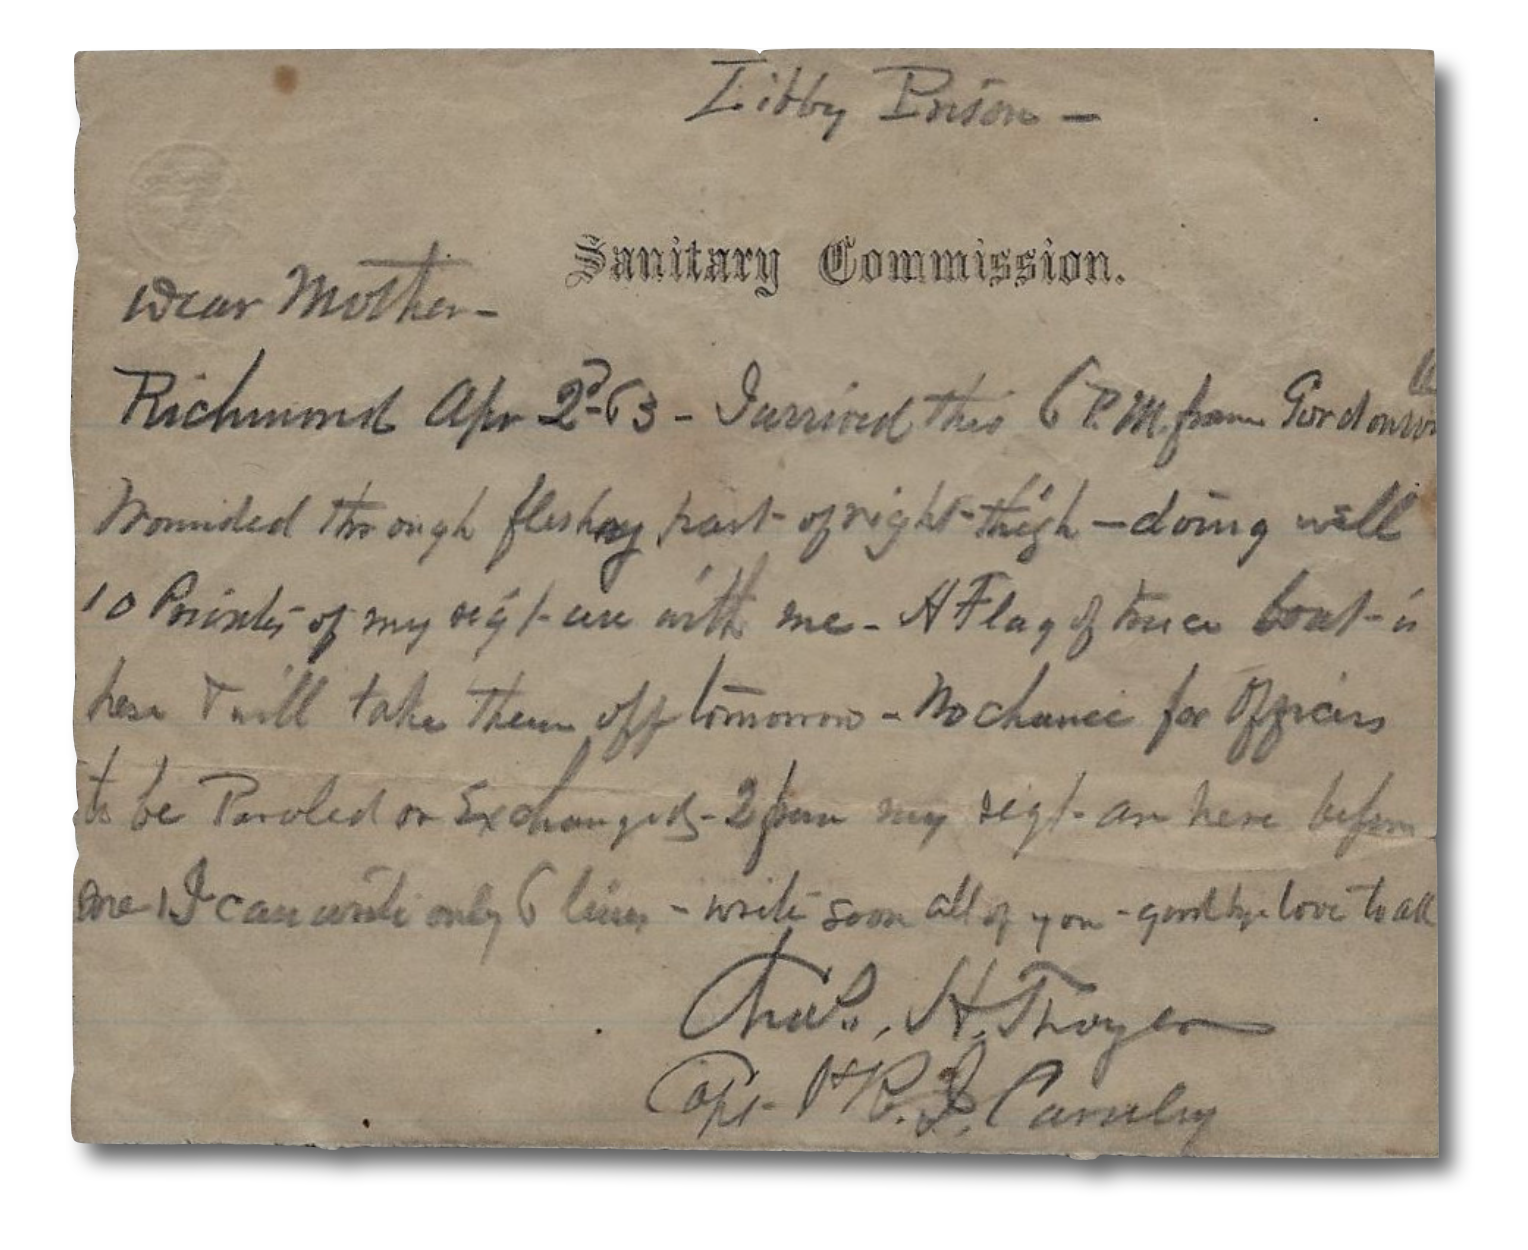 Libby Prison –
Sanitary Commission.
Dear Mother –
Richmond Apr 2d - 63 – I arrived this 6 P.M. from Gordonsvi
Wounded through fleshy part of right thigh – doing well
10 Privates of my regt are with me – A Flag of truce boat is
here & will take them off tomorrow – No chance for Officers
to be Paroled or Exchanged – 2 from my regt – are here before
me – I can write only 6 lines – write soon all of you – good bye love to all
Chas. H. Thayer
Capt – 1st R. I. Cavalry